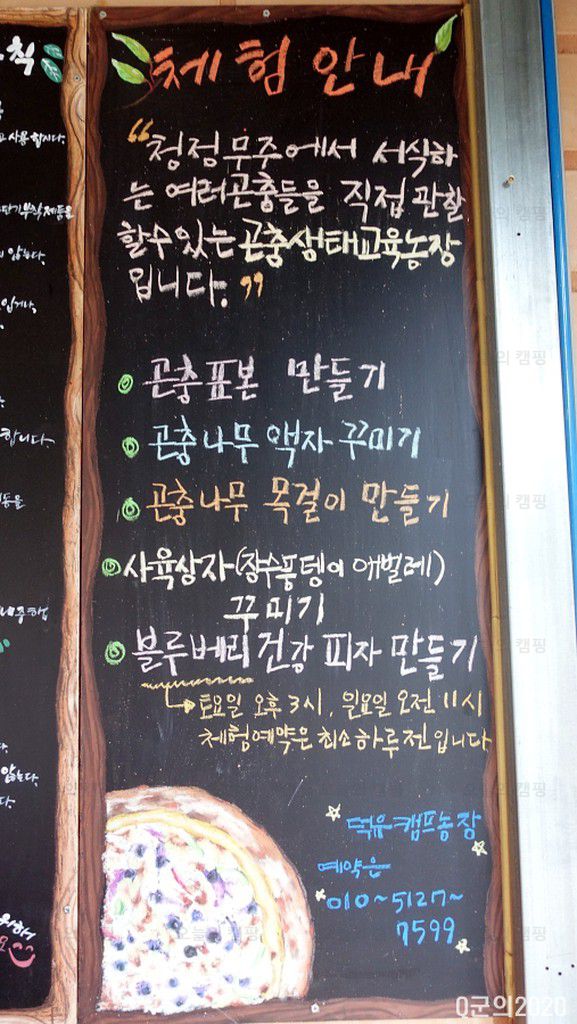 체험안내
“청정무주에서 서식하
는 여러곤충들을 직접 관찰
할수있는 곤충생태교육농장
입니다.”
곤충표본 만들기
곤충나무 액자 꾸미기
곤충나무 목걸이 만들기
사육상자(장수풍뎅이 애벌레)
꾸미기
블루베리 건강 피자 만들기
토요일 오후 3시, 일요일 오전 11시
체험예약은 최소하루전입니다
덕유캠프농장
예약은
010~5127~
7599
칙
사용합시다.
않는다.
합니다.
Q군의2020